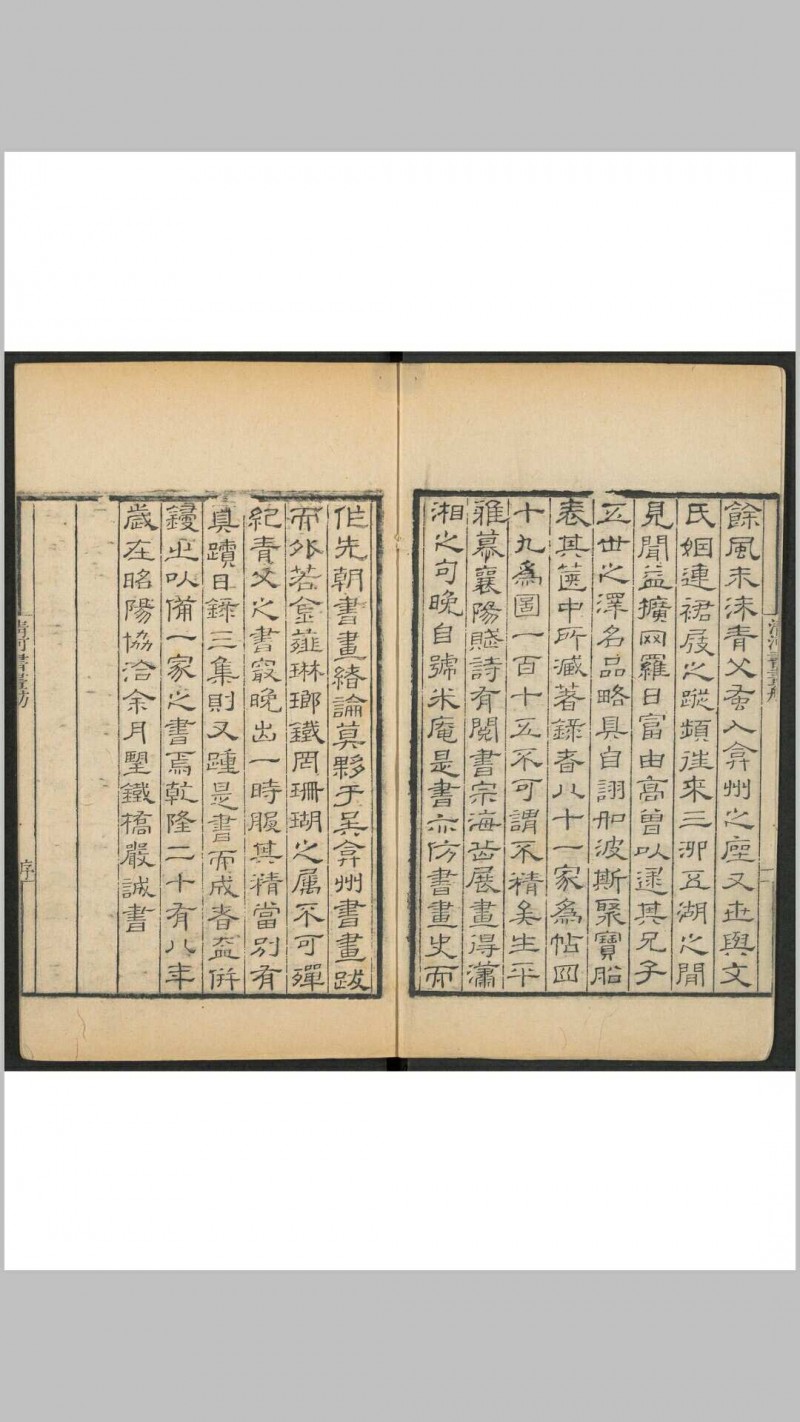 餘風未沫青父蚤入弇州之座又世與文
氏姻連裙屐之蹤頻徃來三泖五湖之間
見聞益擴网羅日富由高曾以逮其兄子
五世之澤名品略具自詡如波斯聚寶船
表其篋中所藏著錄者八十一家爲帖四
十九爲圖一百十五不可謂不精矣生平
雅慕襄陽賦詩有閱書宗海岳展畫得瀟
湘之句晚自號米庵是書亦仿書畫史而
作先朝書畫緒論莫夥于吳弇州書畫跋
而外若金薤琳瑯鐵网珊瑚之属不可殫
紀青父之書最晚出一時服其精當別有
真蹟日錄三集則又踵是書而成者盍併
鋟之以備一家之書焉乾隆二十有八年
歲在昭陽協洽余月墅鐵橋嚴誠書
清河書畫舫
序